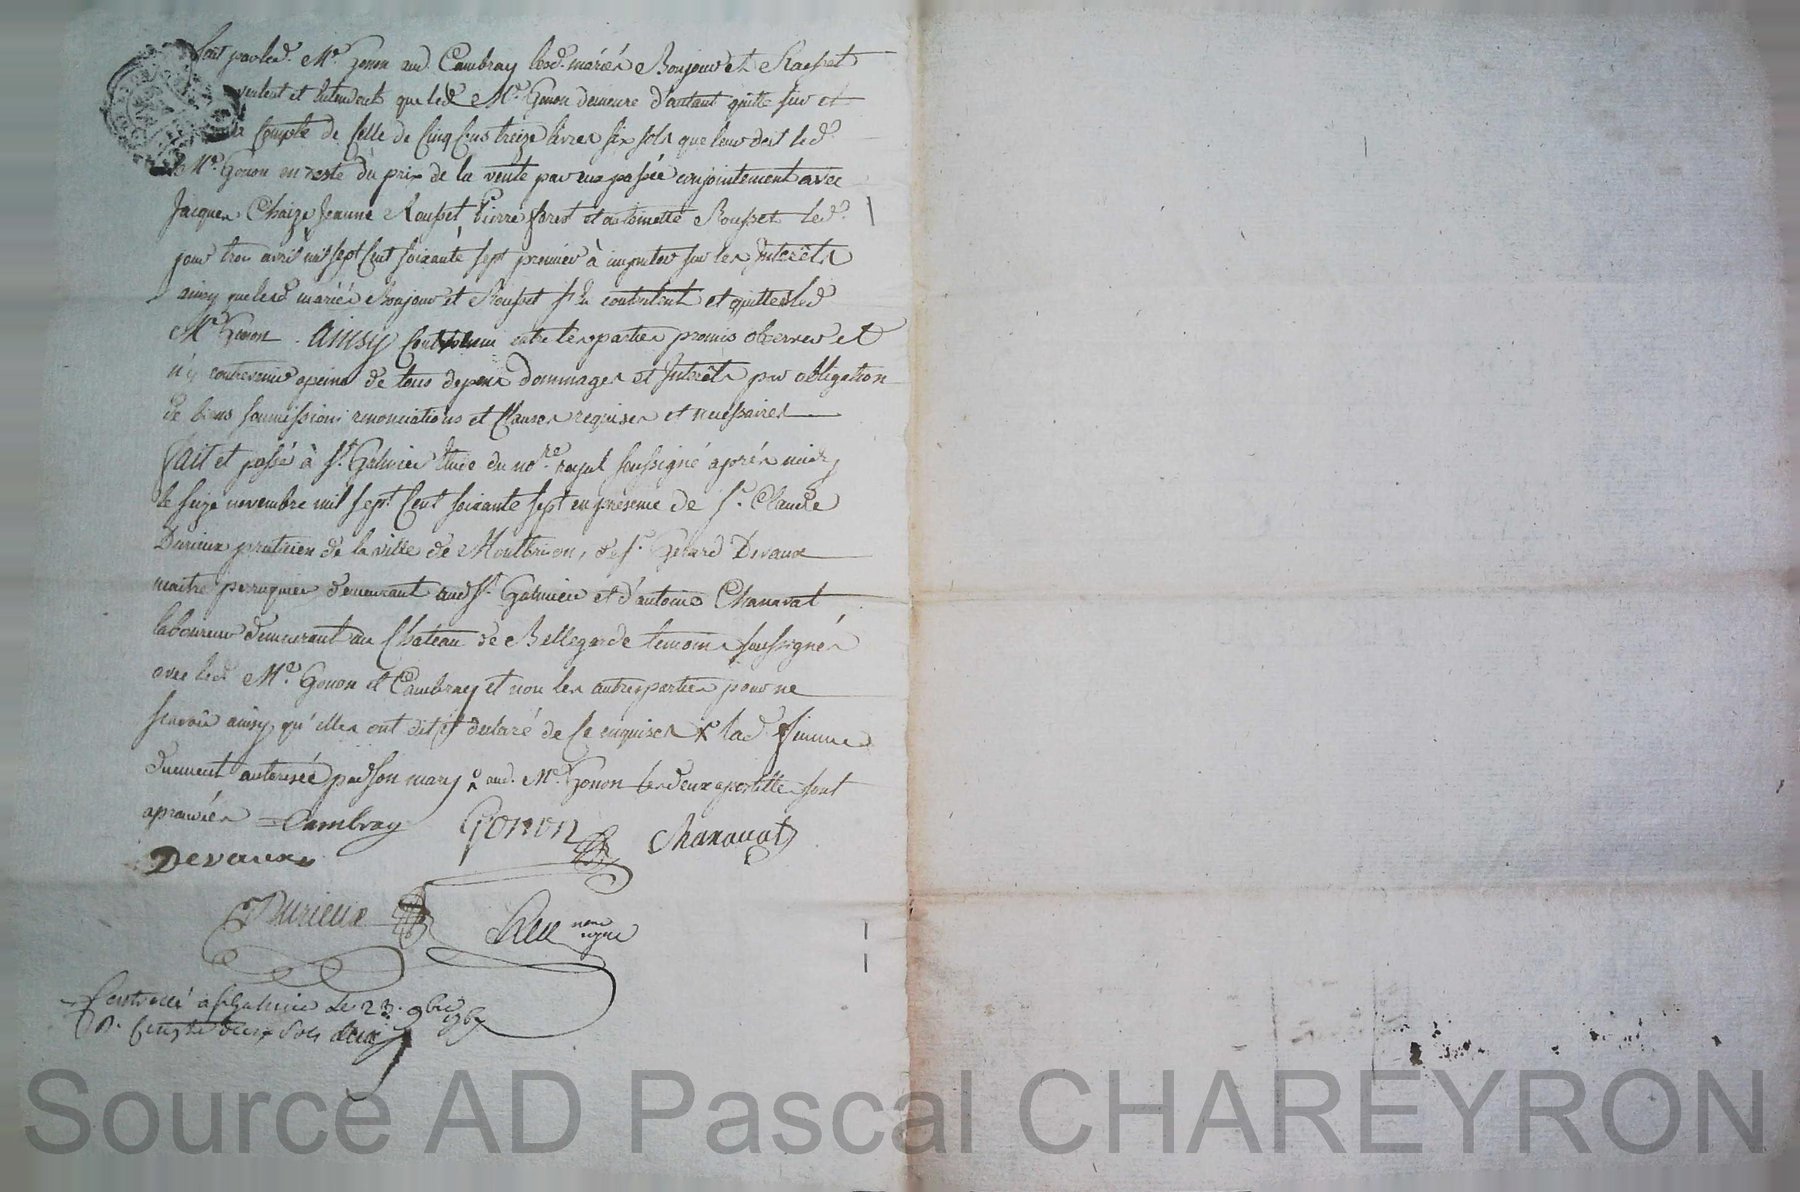 fait par led. Me. Gonon aud. Cambray lesd. mariés Bonjour et Rousset
veulent et entendent que led Me. Gonon demeure d'autant quitte sur et
compte de celle de cinq cens treize livres six sols que leur doit led.
Me. Gonon en reste du prix de la vente par eux passée conjointement avec
Jacques Chaize Jeanne Rousset Pierre forest et antoinette Rousset led.
jour trois avril mil sept cent soixante sept premier à imputer sur les Interêts
ainsy que lesd mariés Bonjour et Rousset s'en contentent et quittent led
Me Gonon . ainsy convenu entre les parties promis observer et
n'y contrevenir a peine de tous depens dommages et Interêts par obligation
de biens soumissions renonciations et clauses requises et necessaires
fait et passé à St. Galmier étude du nore. royal soussigné après midy
le seize novembre mil sept cent soixante sept en presence de Sr. Claude
Durieux praticien de la ville de Montbrison, de Sr. Gerard Devaux
maitre perruquier demeurant aud St. Galmier et d'antoine Chanavat
laboureur demeurant au Chateau de Bellegarde temoins soussignés
avec led. Me. Gonon et Cambray et non les autres parties pour ne
scavoir ainsy qu'elles ont dit et declaré de ce enquises x lad. femme
duement autorisée par son mary x aud. Me. Gonon les deux apostilles sont
aprouvées Cambray Gonon Chanavat
Devaux
Durieux
nore royal
Controllé à St Galmier le 23. 9bre 1767
R. cinq sols
Source AD Pascal CHAREYRON